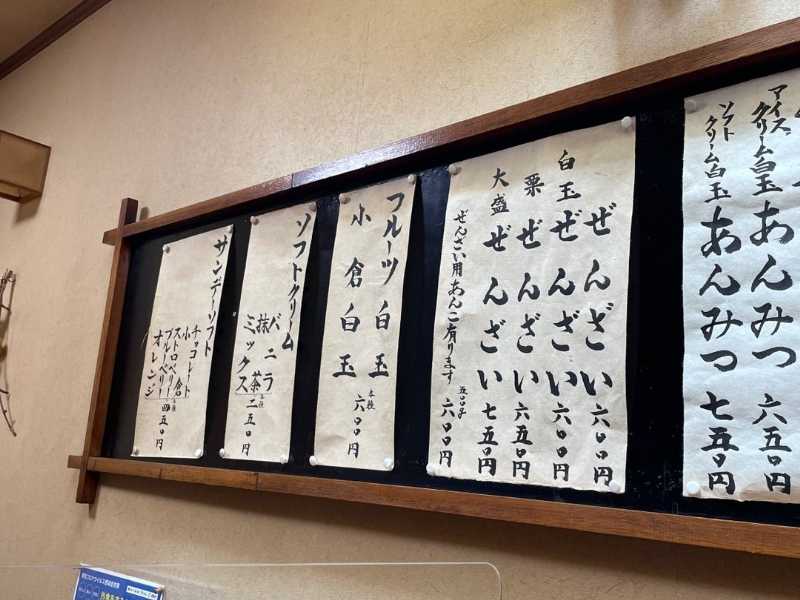 アイス
クリーム白玉あんみつ 六五〇円
ソフト
クリーム白玉あんみつ 七五〇円
ぜんざい 六〇〇円
白玉ぜんざい 六〇〇円
栗ぜんざい 六五〇円
大盛ぜんざい 七五〇円
ぜんざい用あんこ有ります 五〇〇g 六〇〇円
フルーツ白玉
小倉白玉 各種 六〇〇円
ソフトクリーム
バニラ
抹茶
ミックス 各種 二五〇円
サンデーソフト
チョコレート
小倉
ストロベリー
ブルーベリー
オレンジ 各種 四五〇円